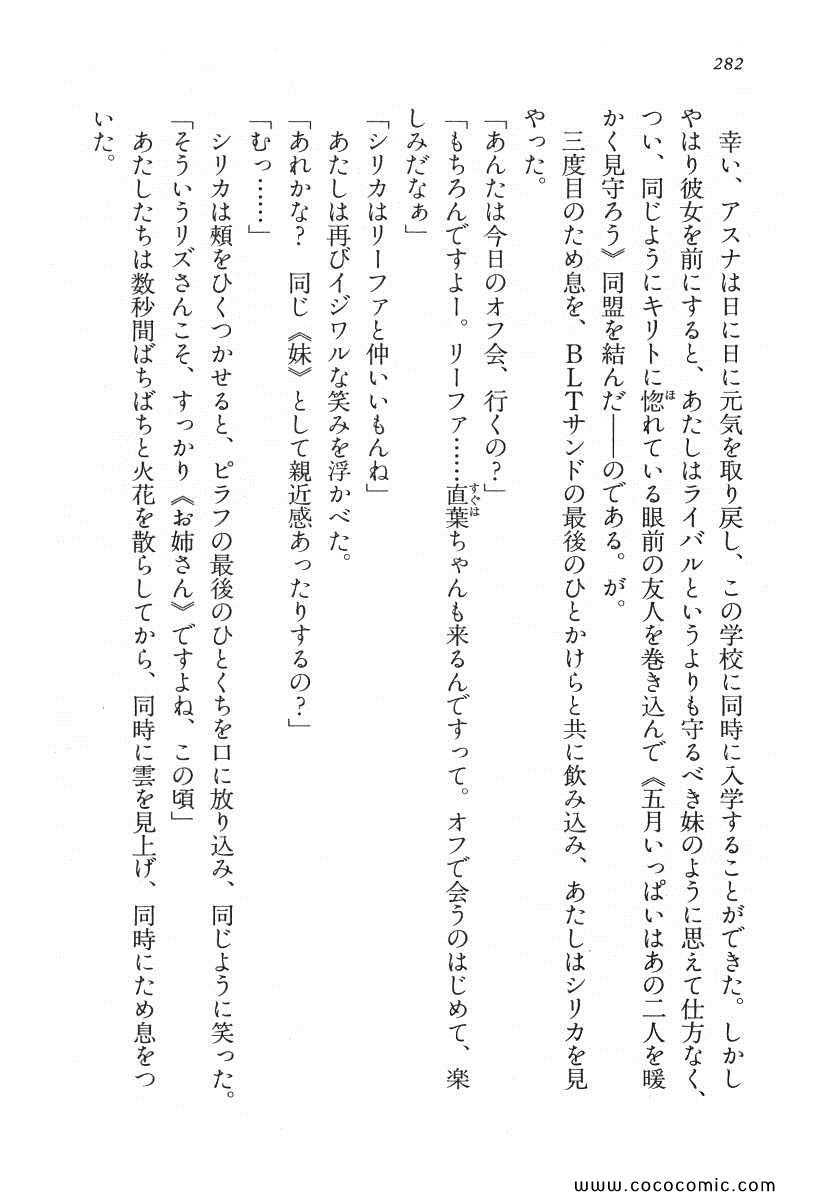 282
幸い、アスナは日に日に元気を取り戻し、この学校に同時に入学することができた。しかし
やはり彼女を前にすると、あたしはライバルというよりも守るべき妹のように思えて仕方なく、
つい、同じようにキリトに惚れている眼前の友人を巻き込んで《五月いっぱいはあの二人を暖
かく見守ろう》同盟を結んだ――のである。が。
三度目のため息を、ＢＬＴサンドの最後のひとかけらと共に飲み込み、あたしはシリカを見
やった。
「あんたは今日のオフ会、行くの？」
「もちろんですよー。リーファ……直葉ちゃんも来るんですって。オフで会うのはじめて、楽
しみだなぁ」
「シリカはリーファと仲いいもんね」
あたしは再びイジワルな笑みを浮かべた。
「あれかな？　同じ《妹》として親近感あったりするの？」
「むっ……」
シリカは頬をひくつかせると、ピラフの最後のひとくちを口に放り込み、同じように笑った。
「そういうリズさんこそ、すっかり《お姉さん》ですよね、この頃」
あたしたちは数秒間ばちばちと火花を散らしてから、同時に雲を見上げ、同時にため息をつ
いた。
www.cococomic.com